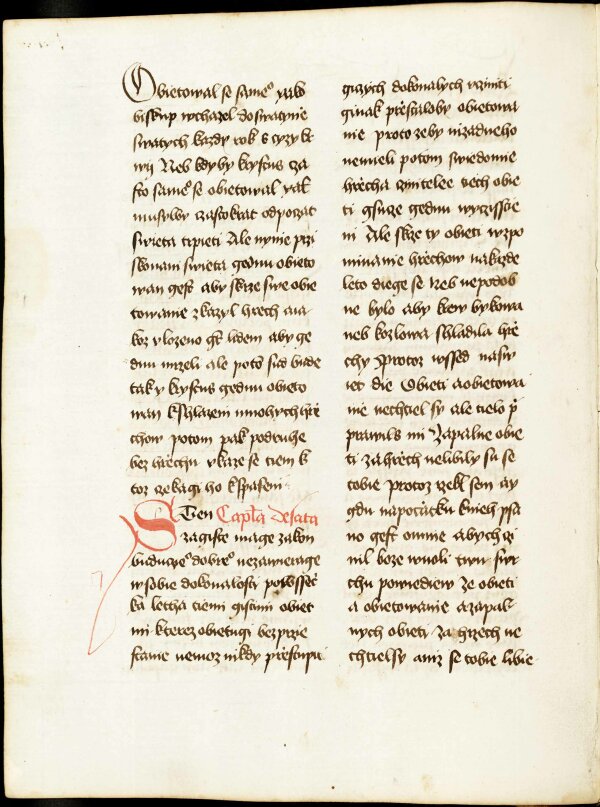 Obietowal se sameo yako
biskup wchazel doswatynie
swatych kazdy rok s cyzy kr
wij Neb kdyby krystus cza
sto sameo se obietowal yak
musylby czastokrat odpoczat
swieta trpieti Ale nynie przi
skonani swieta gednu obieto
wan gest aby skrze swe obie
towanie zkazyl hrzech a ia
koz vlozeno gt lidem aby ge
dnu mrzeli ale poto sud bude
tak y krystus gednu obieto
wan kshlazeni mnohych hrzie
chow potom pak podruhe
bez hrzechu vkaze se tiem k
torz czekagi ho kspaseni
Capla desata
STien
zagiste mage zakon
buducyo dobreo ne zawierage
w sobie dokonalosti powssec
ka letha tiemi gistimi obiet
mi kterez obietugi bezprzie
stanie nemoz nikdy przistupu
giczych dokonalych vcziniti
ginak przestaloby obietowa
nie protoze by nizadneho
nemieli potom swiedomie
hrzecha cztitelee tiech obie
ti gsuce gednu wyczisscze
ni Ale skrze ty obieti wzpo
minanie hrzechow nakazde
leto diege se Neb nepodob
ne bylo aby krew bykowa
neb kozlowa shladila hrzie
chy Protoz wssed nasw
iet die Obieti aobietowa
nie nechtiel sy ale tielo p
prawils mi Zapalne obie
ti zahrzech nelibily su se
tobie Protoz rzekl sem ay
gdu napoczatku knieh psa
no gest omnie abych czi
nil boze wuoli twu swr
chu powiediew ze obieti
a obietowanie azapal
nych obieti za hrzech ne
chtielsy aniz se tobie libie